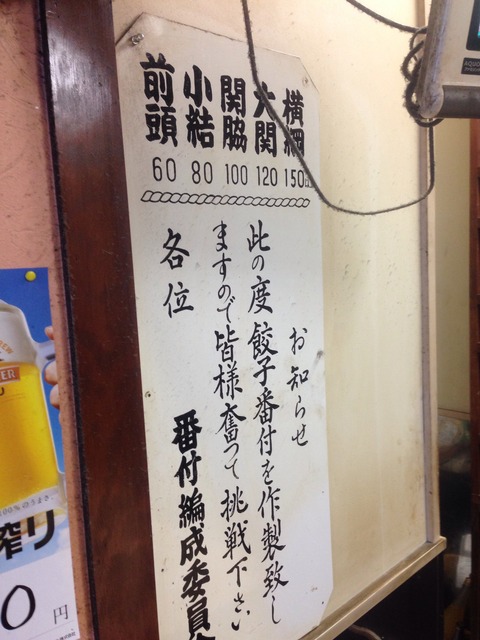 横綱
150
大関
120
関脇
100
小結
80
前頭
60
お知らせ
此の度餃子番付を作製致し
ますので皆様奮つて挑戦下さい
各位
番付編成委員
100%のうまさ。
搾り
0円